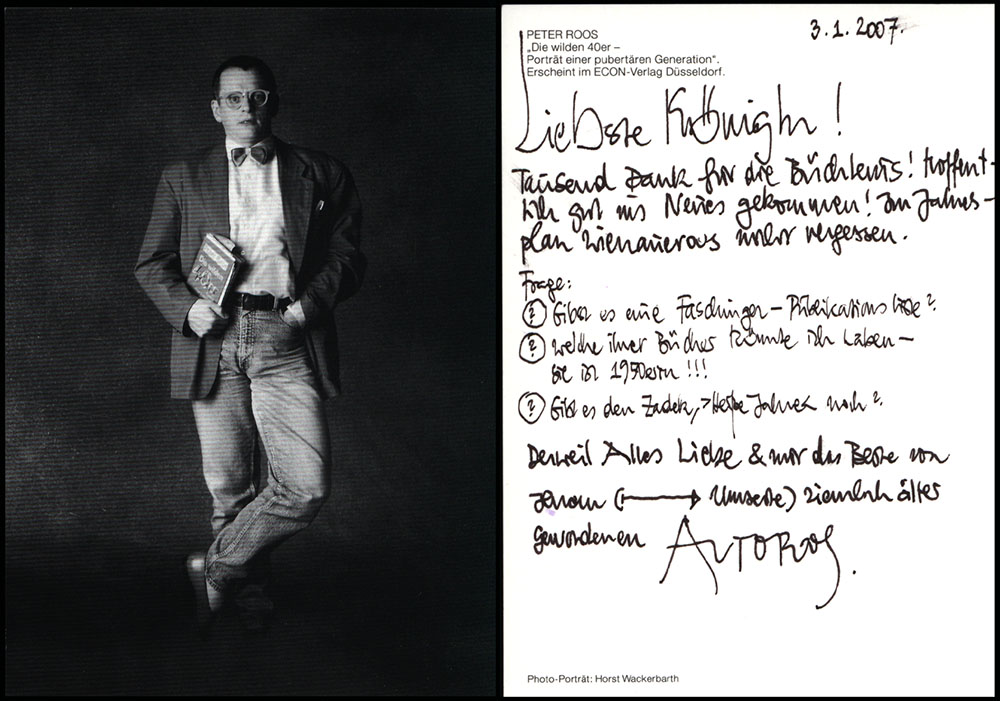 3.1.2007.
PETER ROOS
„Die wilden 40er –
Porträt einer pubertären Generation“.
Erscheint im ECON-Verlag Düsseldorf.
Liebste !
Tausend Dank für die Büchleins! Hoffent-
lich gut ins Neues gekommen! Im Jahres-
plan vergessen.
Frage:
? Gibt es eine Faschinger – Publikationsliste?
? Welche ihrer Bücher könnte ich haben –
sie ist 1950erin !!!
? Gibt es den Zadek, > Jahre< noch?
Derweil Alles Liebe & nur das Beste von
Jenem (⟶ Umseite) ziemlich älter
gewordenen AUTOROOS.
Photo-Porträt: Horst Wackerbarth